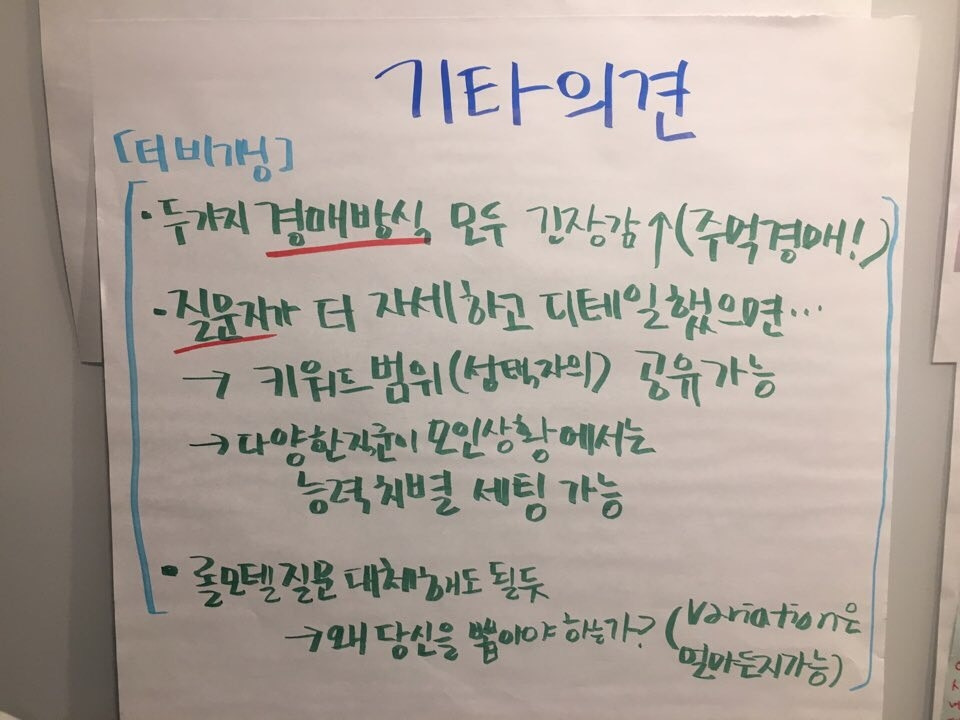 기타의견
[더 비갱]
· 두가지 경매방식 모두 긴장감↑(주먹경매!)
· 질문자가 더 자세하고 디테일했으면...
→ 키워드범위(선택자의) 공유가능
→ 다양한직군이 모인상황에서는
능력치별 세팅 가능
• 롤모델질문 대체해도 될듯
→ 왜 당신을 뽑아야 하는가? (variation은
얼마든지가능)